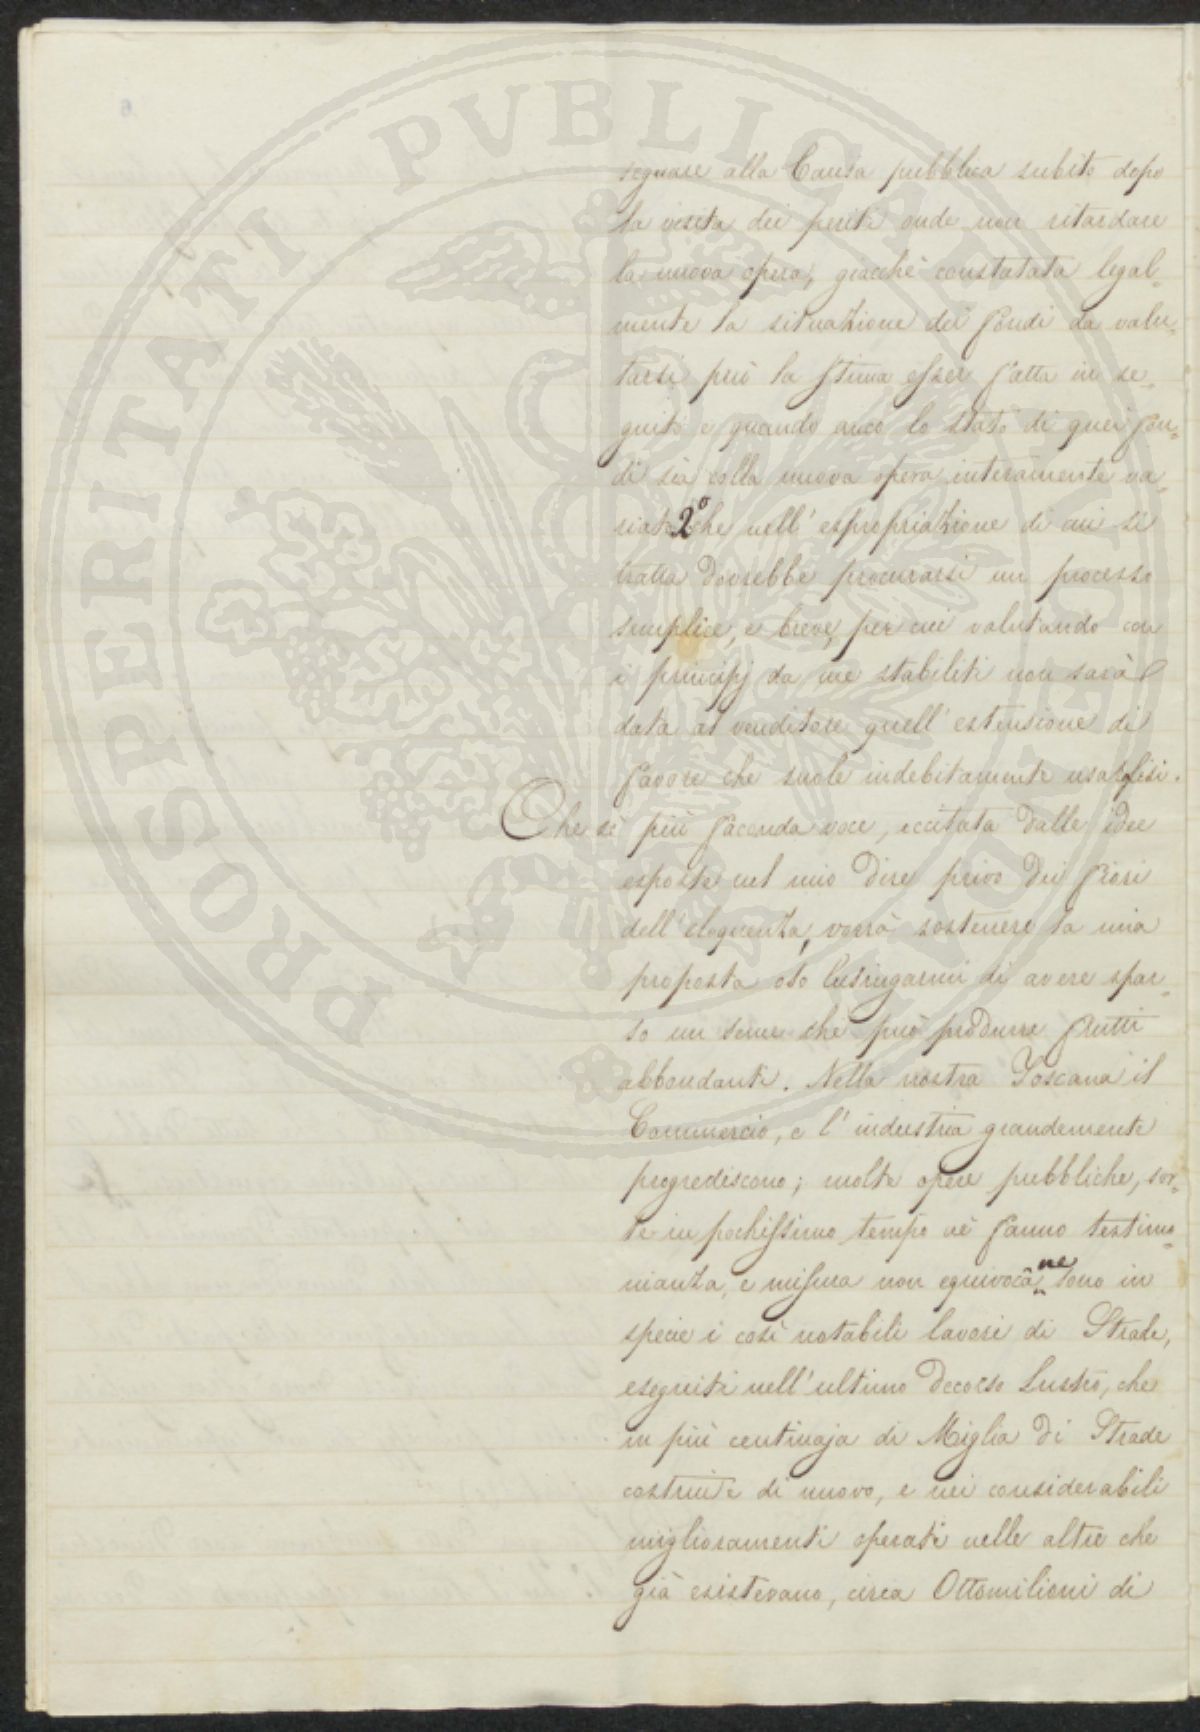 segnare alla Causa pubblica subito dopo
la visita dei periti onde non ritardare
la nuova opera, giacchè constatata legal-
mente la situazione dei fondi da valu-
tarsi può la stima esser fatta in se-
guito e quando anco lo stato di quei fon-
di sia colla nuova opera interamente va-
riato 2° che nell'espropriazione di cui si
tratta dovrebbe procurarsi un processo
semplice, e breve, per cui valutando con
i principj da me stabiliti non sarà
data al venditore quell'estensione di
favore che suole indebitamente usarglisi.
Che se più faconda voce, eccitata dalle idee
esposte nel mio dire privo dei fiori
dell'eloquenza, vorrà sostenere la mia
proposta oso lusingarmi di avere spar-
so un seme che può produrre frutti
abbondanti. Nella nostra Toscana il
Commercio, e l'industria grandemente
progrediscono; molte opere pubbliche, sor-
te in pochissimo tempo ne fanno testimo-
nianza, e misura non equivoca ne sono in
specie i così notabili lavori di Strade,
eseguiti nell'ultimo decorso Lustro, che
in più centinaja di Miglia di Strade
costruite di nuovo, e nei considerabili
miglioramenti operati nelle altre che
già esistevano, circa Ottomilioni di
PROSPERITATI PVBLICAE